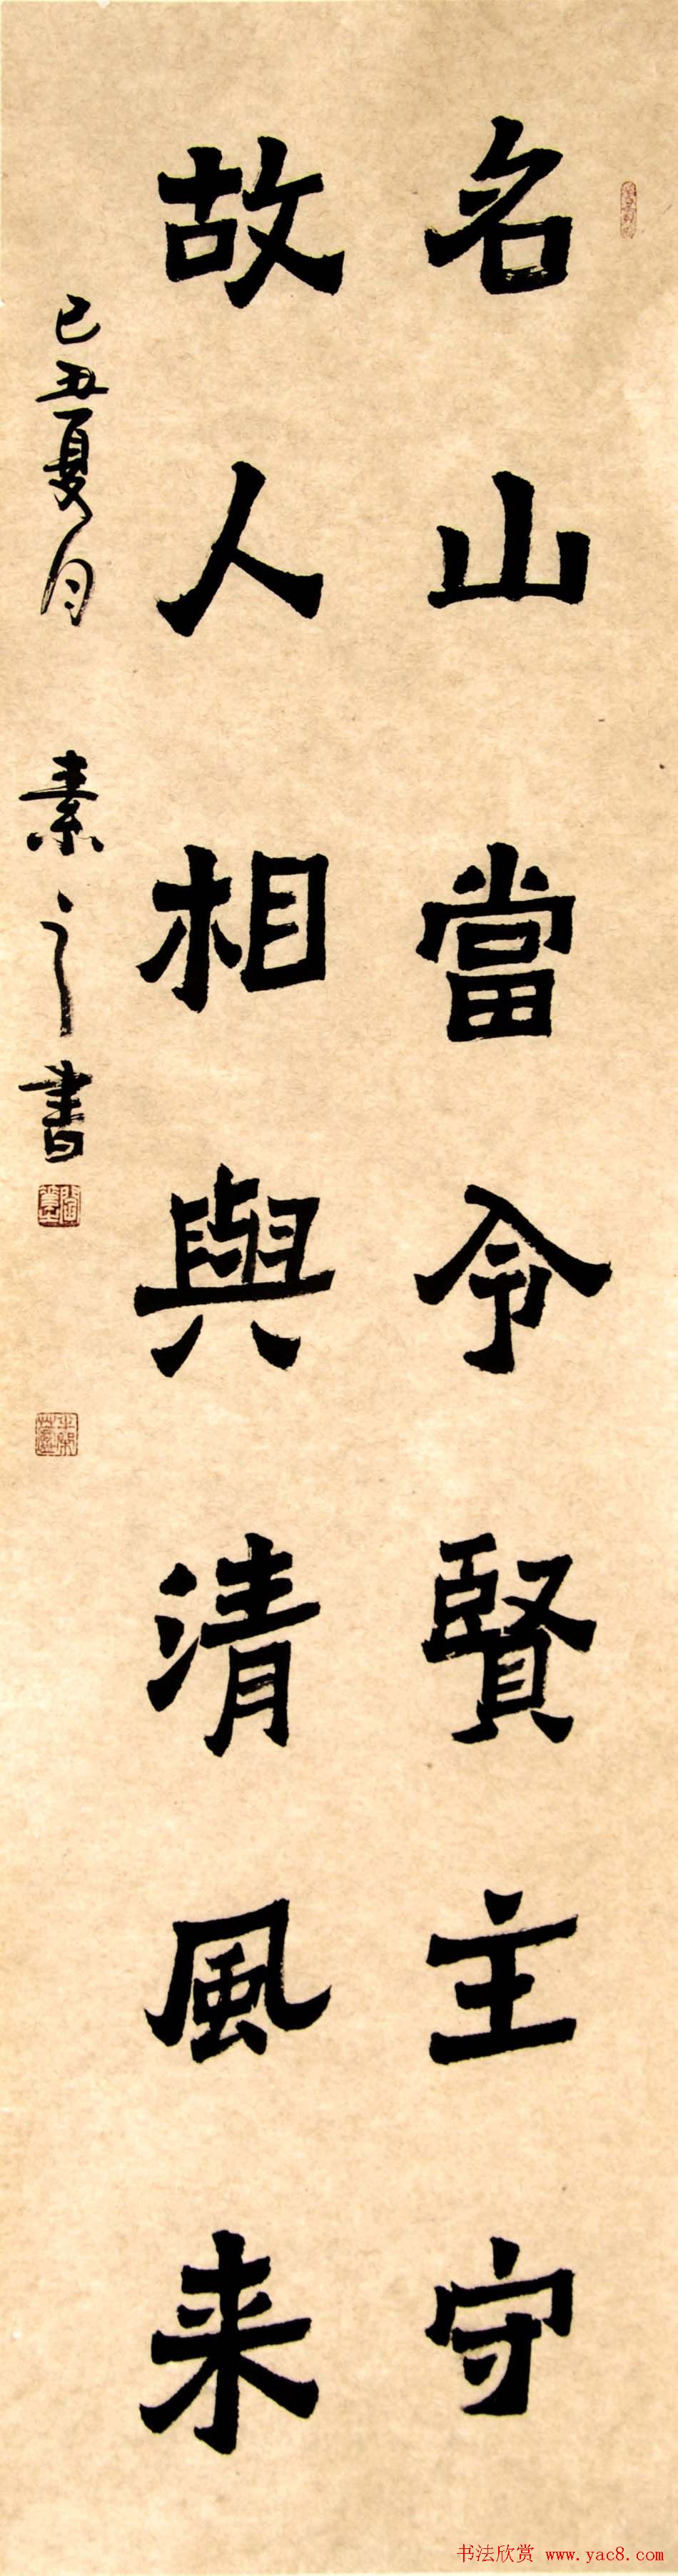 名山當令賢主守
故人相與清風来
己丑夏月 素之書
书法欣赏 www.yac8.com